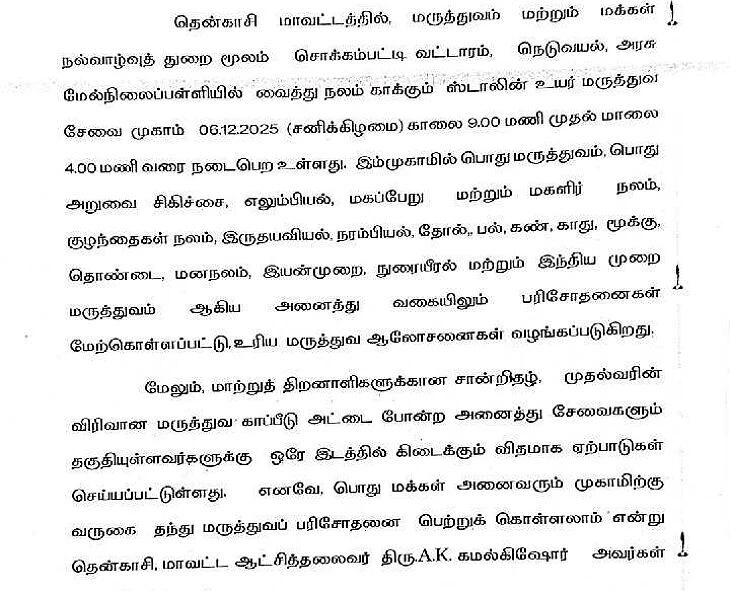 தென்காசி மாவட்டத்தில், மருத்துவம் மற்றும் மக்கள்
நல்வாழ்வுத் துறை மூலம் சொக்கம்பட்டி வட்டாரம், நெடுவயல், அரசு
மேல்நிலைப்பள்ளியில் வைத்து நலம் காக்கும் ஸ்டாலின் உயர் மருத்துவ
சேவை முகாம் 06.12.2025 (சனிக்கிழமை) காலை 9.00 மணி முதல் மாலை
4.00 மணி வரை நடைபெற உள்ளது. இம்முகாமில் பொது மருத்துவம், பொது
அறுவை சிகிச்சை, எலும்பியல், மகப்பேறு மற்றும் மகளிர் நலம்,
குழந்தைகள் நலம், இருதயவியல், நரம்பியல், தோல்,, பல், கண், காது, மூக்கு,
தொண்டை, மனநலம், இயன்முறை, நுரையீரல் மற்றும் இந்திய முறை
மருத்துவம் ஆகிய அனைத்து வகையிலும் பரிசோதனைகள்
மேற்கொள்ளப்பட்டு, உரிய மருத்துவ ஆலோசனைகள் வழங்கப்படுகிறது.
மேலும், மாற்றுத் திறனாளிகளுக்கான சான்றிதழ், முதல்வரின்
விரிவான மருத்துவ காப்பீடு அட்டை போன்ற அனைத்து சேவைகளும்
தகுதியுள்ளவர்களுக்கு ஒரே இடத்தில் கிடைக்கும் விதமாக ஏற்பாடுகள்
செய்யப்பட்டுள்ளது. எனவே, பொது மக்கள் அனைவரும் முகாமிற்கு
வருகை தந்து மருத்துவப் பரிசோதனை பெற்றுக் கொள்ளலாம் என்று
தென்காசி, மாவட்ட ஆட்சித்தலைவர் திரு.A.K. கமல்கிஷோர் அவர்கள்